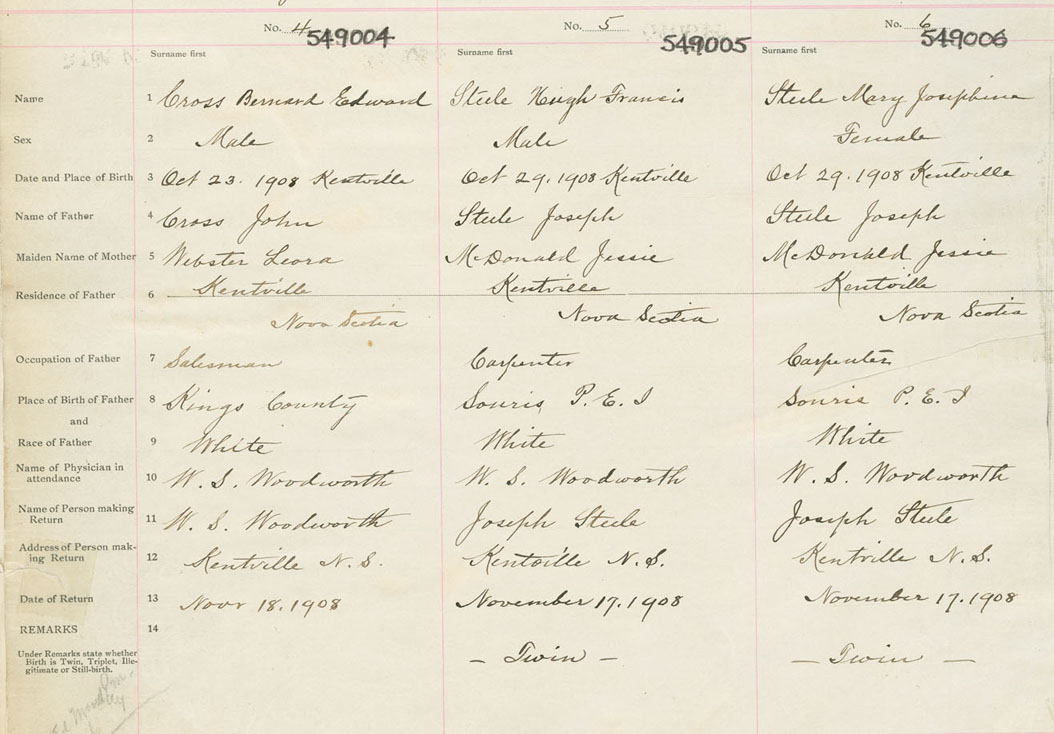 No. 4 549004 No. 5 549005 No. 6 549006
Surname first Surname first Surname first
Name 1 Cross Bernard Edward Steele Hugh Francis Steele Mary Josephine
Sex 2 Male Male Female
Date and Place of Birth 3 Oct 23. 1908 Kentville Oct 29, 1908 Kentville Oct 29. 1908 Kentville
Name of Father 4 Cross John Steele Joseph Steele Joseph
Maiden Name of Mother 5 Webster Leora McDonald Jessie McDonald Jessie
Residence of Father 6 Kentville Kentville Kentville
Nova Scotia Nova Scotia Nova Scotia
Occupation of Father 7 Salesman Carpenter Carpenter
Place of Birth of Father 8 Kings County Souris P. E. I Souris P. E. I
and
Race of Father 9 White White White
Name of Physician in
attendance 10 W. S. Woodworth W. S. Woodworth W. S. Woodworth
Name of Person making
Return 11 W. S. Woodworth Joseph Steele Joseph Steele
Address of Person mak-
ing Return 12 Kentville N. S. Kentville N. S. Kentville N. S.
Date of Return 13 Novr 18. 1908 November 17. 1908 November 17. 1908
REMARKS 14
Under Remarks state whether
Birth is Twin, Triplet, Ille-
gitimate or Still-birth.
– Twin – – Twin –